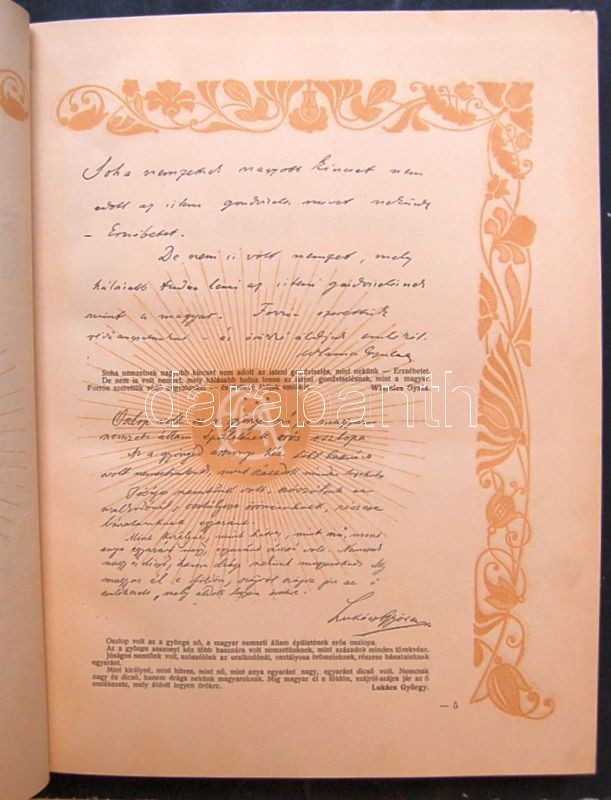 Soha nemzetnek nagyobb kincset nem
adott az isteni gondviselés mint nekünk
– Erzsébetet.
De nem is volt nemzet, mely
hálásabb tudna lenni az isteni gondviselésnek
mint a magyar. Forrón szerettük
– és örökké áldjuk emlékét.
Wlassics Gyula
Soha nemzetnek nagyobb kincset nem adott az isteni gondviselés, mint nekünk — Erzsébetet.
De nem is volt nemzet, mely hálásabb tudna lenne az isteni gondviselésnek, mint a magyar.
Forrón szerettük védő angyalunkat — és örökké áldjuk emlékét. Wlassics Gyula.
darabanth
Oszlop volt az a gyönge nő, a magyar
nemzeti állam épületének erős oszlopa
Az a gyönge asszonyi kéz több hasznára
volt nemzetünknek, mint századok minden
Jóságos nemtőnk volt, szószólónk az
uralkodónál, osztályosa örömeinknek, részese
bánatainknak egyaránt.
Mint királyné, mint hitves, mint nő, mint
anya egyaránt nagy, egyaránt dicső volt. Nemcsak
nagy és dicső, hanem drága nekünk magyaroknak. Míg
magyar él e földön, szájról szájra jár az ő
emlékezete, mely áldott legyen örökre.
Lukács György
Oszlop volt az a gyönge nő, a magyar nemzeti állam épületének erős oszlopa.
Az a gyönge asszonyi kéz több hasznára volt nemzetünknek, mint századok minden törekvése.
Jóságos nemtőnk volt, szószólónk az uralkodónál, osztályosa örömeinknek, részese bánatainknak
egyaránt.
Mint királyné, mint hitves, mint nő, mint anya egyaránt nagy, egyaránt dicső volt. Nemcsak
nagy és dicső, hanem drága nekünk magyaroknak. Míg magyar él e földön, szájról-szájra jár az ő
emlékezete, mely áldott legyen örökre.
Lukács György.
— 5